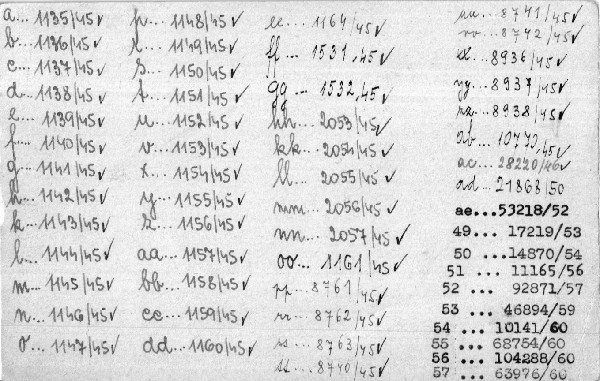 a... 1135/45 ✓
b... 1136/45 ✓
c... 1137/45 ✓
d... 1138/45 ✓
e... 1139/45 ✓
f... 1140/45 ✓
g... 1141/45 ✓
h... 1142/45 ✓
k... 1143/45 ✓
l... 1144/45 ✓
m... 1145/45 ✓
n... 1146/45 ✓
o... 1147/45 ✓
p... 1148/45 ✓
r... 1149/45 ✓
s... 1150/45 ✓
t... 1151/45 ✓
u... 1152/45 ✓
v... 1153/45 ✓
x... 1154/45 ✓
y... 1155/45 ✓
z... 1156/45 ✓
aa... 1157/45 ✓
bb... 1158/45 ✓
cc... 1159/45 ✓
dd... 1160/45 ✓
ee... 1164/45 ✓
ff... 1531,45 ✓
gg... 1532,45 ✓
hh... 2053/45 ✓
kk... 2054/45 ✓
ll... 2055/45 ✓
mm... 2056/45 ✓
nn... 2057/45 ✓
oo... 1161/45 ✓
pp... 8761/45 ✓
rr... 8762/45 ✓
ss... 8763/45 ✓
8740/45 ✓
uu... 8741/45 ✓
vv... 8742/45 ✓
xx... 8936/45 ✓
yy... 8937/45 ✓
zz... 8938/45 ✓
ab... 10770,45 ✓
ac... 28220/46 ✓
ad... 21868/50
ae...53218/52
49... 17219/53
50 ...14870/54
51 ... 11165/56
52 ... 92871/57
53 ... 46894/59
54 ... 10141/60
55 ... 68754/60
56 ... 104288/60
57 ... 63976/60